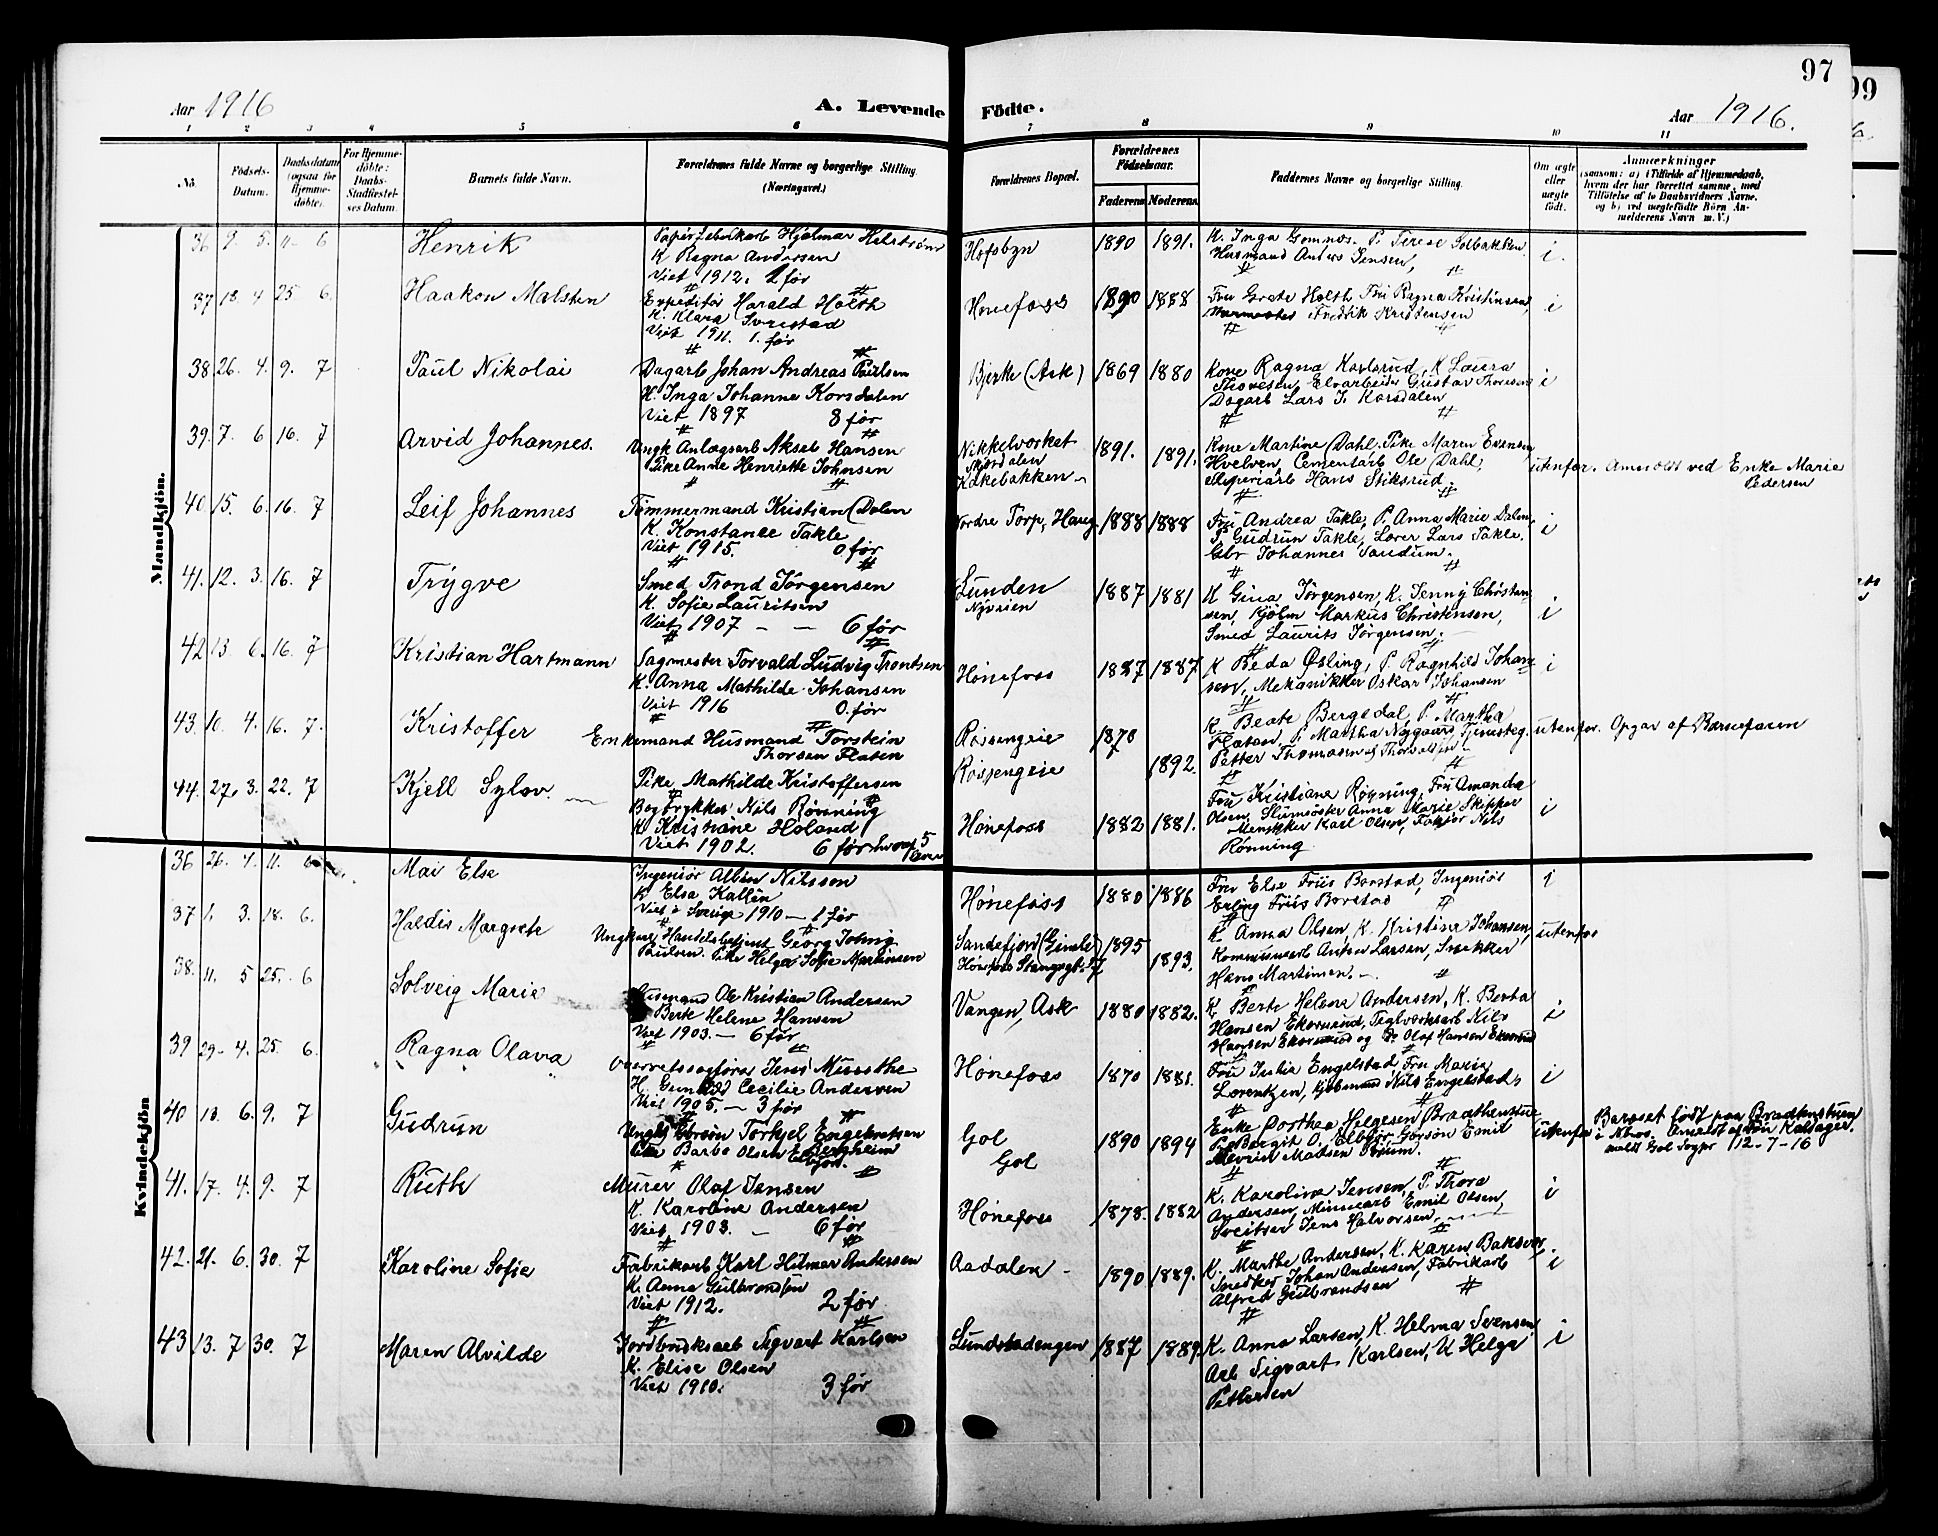 97
99
Aar 1916
A. Levende Fødte.
Aar 1916.
1 2 3 4 5 6 7 8 9 10 11
No.
Fødsels-Datum.
Daabsdatum (ogsaa for Hjemme-døbte).
For Hjemme-døbte: Daabs-Stadfæstel-ses Datum.
Barnets fulde Navn.
Forældrenes fulde Navne og borgerlige Stilling (Næringsvei.)
Forældrenes Bopæl.
Forældrenes Fødselsaar.
Faderens Moderens
Faddernes Navne og borgerlige Stilling.
Om ægte eller uægte født.
Anmærkninger
(saasom: a) i Tilfælde af Hjemmedaab, hvem der har forrettet samme, med Tilføielse af to Daabsvidners Navne, og b) ved uægtefødte Børn An-melderens Navn m. V.)
Mandkjøn.
36 9. 5. 11 6 Henrik
Hjalmar
K Ragna Andersen
Viet 1912. 1 før
Hofsbyn 1890 1891.
K. Inga Gomnæs. P. Terese Solbakken
Husmand Anders Jensen,
i.
37 18. 4 25 6. Haakon Malsten
Expeditør Harald Holth
K. Klara
Viet 1911. 1. før
Hønefoss 1890 1888
Fru Grete Holth Fru Ragna Kristensen,
Fredrik Kristensen
i
38 26. 4. 9. 7 Paul Nikolai
Dagarb Johan Andreas Paulsen
K. Inga Johanne Korsdalen
Viet 1897 8 før
Bjerke (Ask) 1869 1880
Kone Ragna Karlsrud, K Laura
Thoresen, Elvarbeider Gustav Thoresen
Dagarb Lars J. Korsdalen
i
39. 7. 6 16. 7 Arvid Johannes.
Ungk Anlægsarb Aksel Hansen
Pike Anne Henriette Johnsen
Nikkelverket
Kakebakken
1891. 1891.
Kone Martine Dahl. Pike Maren Evensen
Hvelven, Cementarb Ole Dahl,
Sliperiarb Hans Stiksrud.
utenfor. Anmeldt ved Enke Marie
Pedersen
40 15. 6. 16. 7 Leif Johannes
Tømmermand Kristian Dalen
K. Konstance Takle
Viet 1915. 0 før
Nordre Torp, Haug 1888 1888
Fru Andrea Takle, P. Anna Marie Dalen,
P. Gudrun Takle, Lærer Lars Takle.
Gbr Johannes
i
41. 12. 3. 16. 7 Trygve
Smed Trond Jørgensen
K. Sofie Lauritsen
Viet 1907 - - 6 før
Lunden
Nyveien
1887 1881
K Gina Jørgensen, K. Jenny Christen-
sen, Kjøbm Markus Christensen,
Smed Laurits Jørgensen.
i
42 13 6. 16. 7 Kristian Hartmann
Sagmester Torvald Ludvig Trontsen
K. Anna Mathilde Johansen
Viet 1916 0. før
Hønefoss 1887 1887
K Beda Øsling, P. Ragnhild Johan-
sen, Mekanikker Oskar Johansen
i
43. 10. 4. 16. 7. Kristoffer
Enkemand Husmand Torstein
Thorsen Flaten
Pike Mathilde Kristoffersen
Røssengeie
Røssengeie
1870 1892.
K. Beate Bergedal, P. Martha
Flaten, P. Martha Nygaard, Tjenesteg.
Petter Thomasen
utenfor. Opgav af Barnefaren
44. 27. 3. 22. 7 Kjell Sylov.
Bogtrykker Nils Rønning
K Kristiane Holand
Viet 1902. 6 før hvoraf 5
Hønefoss 1882 1881.
Fru Kristiane Rønning, Fru Amanda
Olsen, Anna Marie Skipper
Karl Olsen, Faktor Nils
Rønning
i
Kvindekjøn
36 26. 4. 11. 6 Mai Else
Ingeniør Albin Nilsson
K Elsa Kallin
Viet i Sverige 1910 — 1 før
Hønefoss 1880 1886
Fru Else Friis Borstad, Ingeniør
Erling Friis Borstad
i
37 1. 3. 18. 6. Haldis Margrete
Ungkarl Handelsbetjent Georg
Paulsen. Pike Helga Sofie Martinsen
Sandefjord
1895 1893.
K. Anna Olsen, K. Kristine Johansen,
Kommunearb Anton Larsen, Snekker
Hans Martinsen.
utenfor
38. 11. 5 25. 6 Solveig Marie
Husmand Ole Kristian Andersen
Berte Helene Hansen
Viet 1903. — 6 før
Vangen, Ask 1880 1882.
K. Berte Helene Andersen, K. Berta
Hansen Ekornrud, Teglverksarb Nils
Hansen Ekornrud og Olaf Hansen Ekornrud
i
39 29 4. 25. 6. Ragna Olava
Overretssagfører Jens
Cecilie Andersen
Viet 1905. — 3 før
Hønefoss 1870 1881.
Fru Julie Engelstad, Fru Marie
Lorentzen, Nils Engelstad,
i
40 13. 6. 9. 7 Gudrun
Torkjel Engebretsen
Pike Barbo Olsen
Gol
Gol
1890 1894
Enke Dorthea Helgesen Bradthenstuen
P. Bergit O. Gaardsøn Emil
utenfor
Barnet født paa Bradenstuen
meldt Gol Sogpr 12-7-16
41. 17. 4. 9. 7 Ruth
Murer Olaf Jensen
K. Karoline Andersen
Viet 1903. — 6 før
Hønefoss 1878. 1882
K. Karoline Jensen, P. Thora
Andersen, Minearb Emil Olsen,
Sveitser Jens Halvorsen.
i
42. 21. 6. 30. 7 Karoline Sofie
Fabrikarb Karl Hilmar Andersen
K. Anna Gulbrandsen
Viet 1912. 2 før
Aadalen 1890 1889.
K. Marthe Andersen, K. Karen Bakser,
Snedker Johan Andersen, Fabrikarb
Alfred Gulbrandsen
i
43 13. 7 30. 7 Maren Alvilde
Jordbruksarb Sigvart Karlsen
K. Elise Olsen
Viet 1910. 3 før
Lundstadengen 1887 1889.
K. Anna Larsen, K. Helma Svensen,
Arb Sigvart Karlsen, U Helge
Pettersen
i